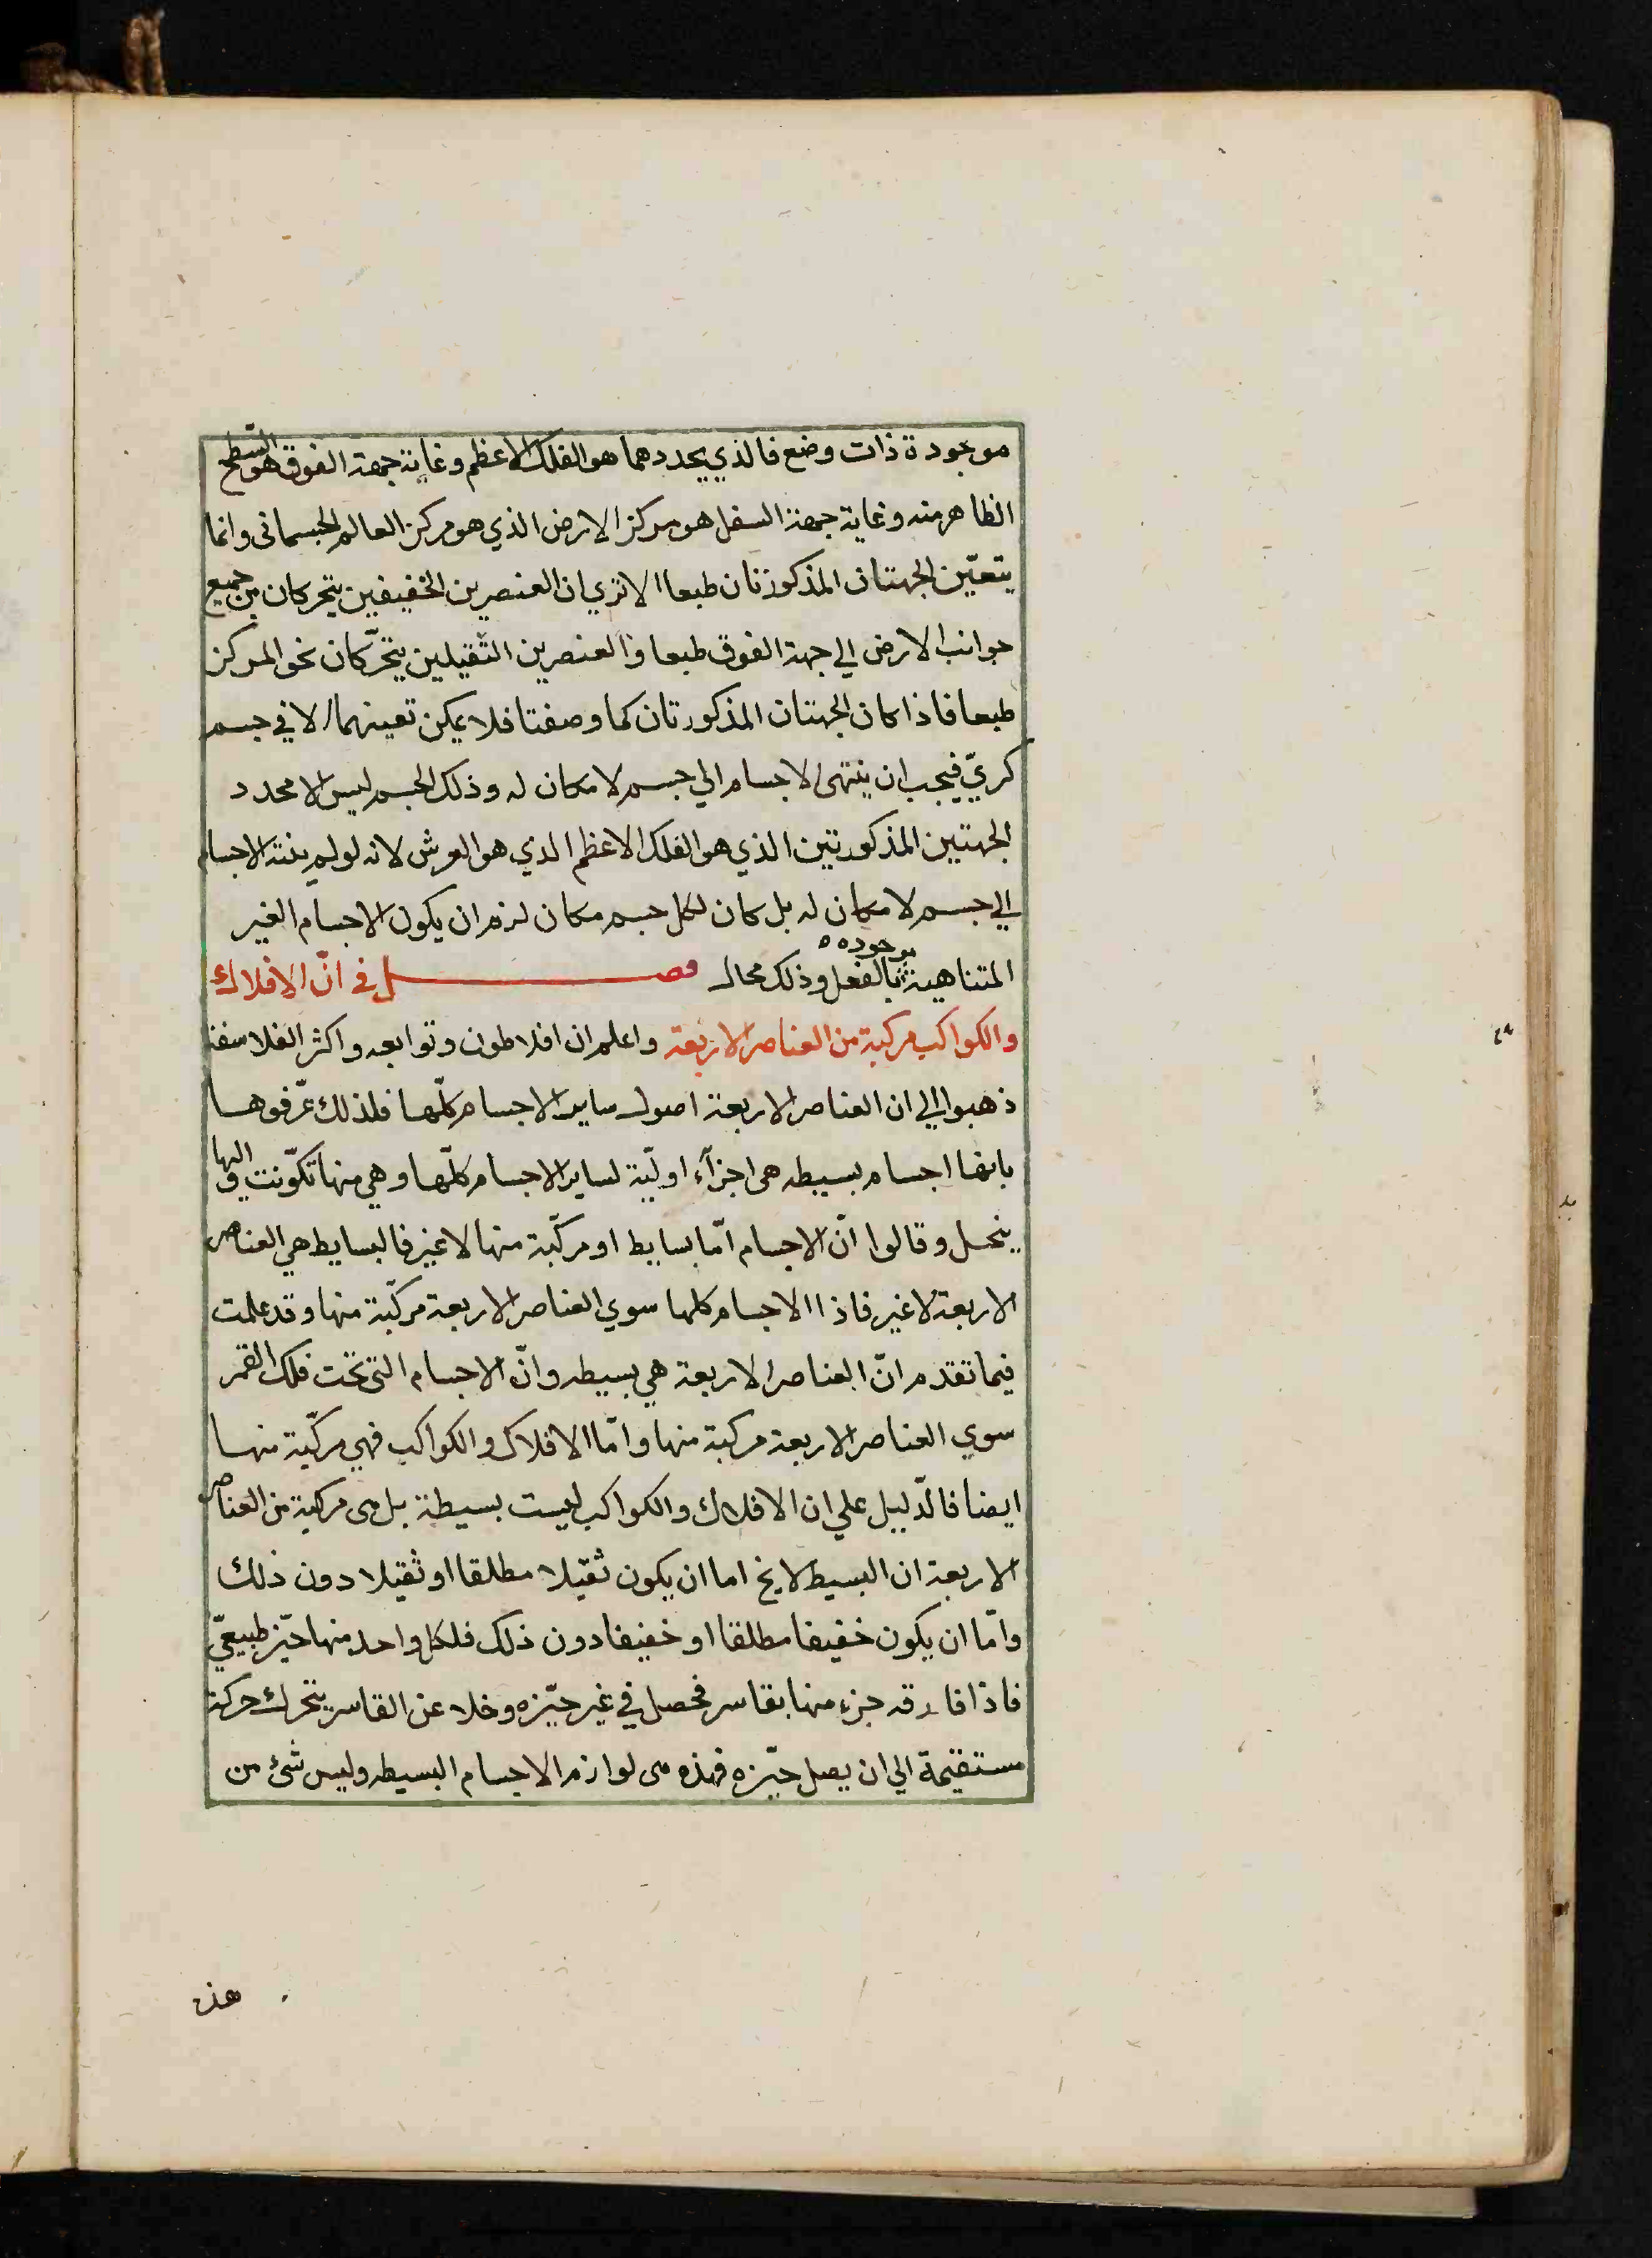 موجودة ذات وضع فالذي يحددهما هو الفلك الاعظم وغاية جهة الفوق هو السّطح
الظاهر منه وغاية جهة السفل هو مركز الارض الذي هو مركز العالم الجسمانى وانما
يتعيّن الجهتان المذكورتان طبعا الا تري ان العنصرين الخفيفين يتحركان من جميع
جوانب الارض الي جهة الفوق طبعا والعنصرين الثقيلين يتحرّكان نحو المركز
طبعا فاذا كان الجهتان المذكورتان كما وصفتا فلا يمكن تعينهما الا في جسم
كريّ فيجب ان ينتهى الاجسام الي جسم لا مكان له وذلك الجسم ليس الا محدد
الجهتين المذكورتين الذي هو الفلك الاعظم الذي هو العرش لانه لو لم ينته الاجسام
الي جسم لا مكان له بل كان لكل جسم مكان لزم ان يكون الاجسام الغير
المتناهية موجوده بالفعل وذلك محال فصل في انّ الافلاك
والكواكب مركبة من العناصر الاربعة واعلم ان افلاطون وتوابعه واكثر الفلاسفة
ذهبوا الي ان العناصر الاربعة اصول ساير الاجسام كلّها فلذلك عرّفوها
بانها اجسام بسيطه هى اجزآء اوليّة لساير الاجسام كلّها وهي منها تكوّنت واليها
ينحل وقالوا انّ الاجسام امّا بسايط او مركّبة منها لا غير فالبسايط هي العناصر
الاربعة لا غير فاذا الاجسام كلها سوي العناصر الاربعة مركّبة منها وقد علمت
فيما تقدم انّ العناصر الاربعة هي بسيطه وانّ الاجسام التى تحت فلك القمر
سوي العناصر الاربعة مركبة منها وامّا الافلاك والكواكب فهي مركّبة منها
ايضا فالدّليل علي ان الافلاك والكواكب ليست بسيطة بل هى مركبة من العناصر
الاربعة ان البسيط لا يخ اما ان يكون ثقيلا مطلقا او ثقيلا دون ذلك
وامّا ان يكون خفيفا مطلقا او خفيفا دون ذلك فلكل واحد منها حيّز طبيعيّ
فاذا فارقه جزء منها بقاسر فحصل في غير حيّزه وخلا عن القاسر يتحرك حركة
مستقيمة الي ان يصل حيّزه فهذه هى لوازم الاجسام البسيطه وليس شئ من
هذه